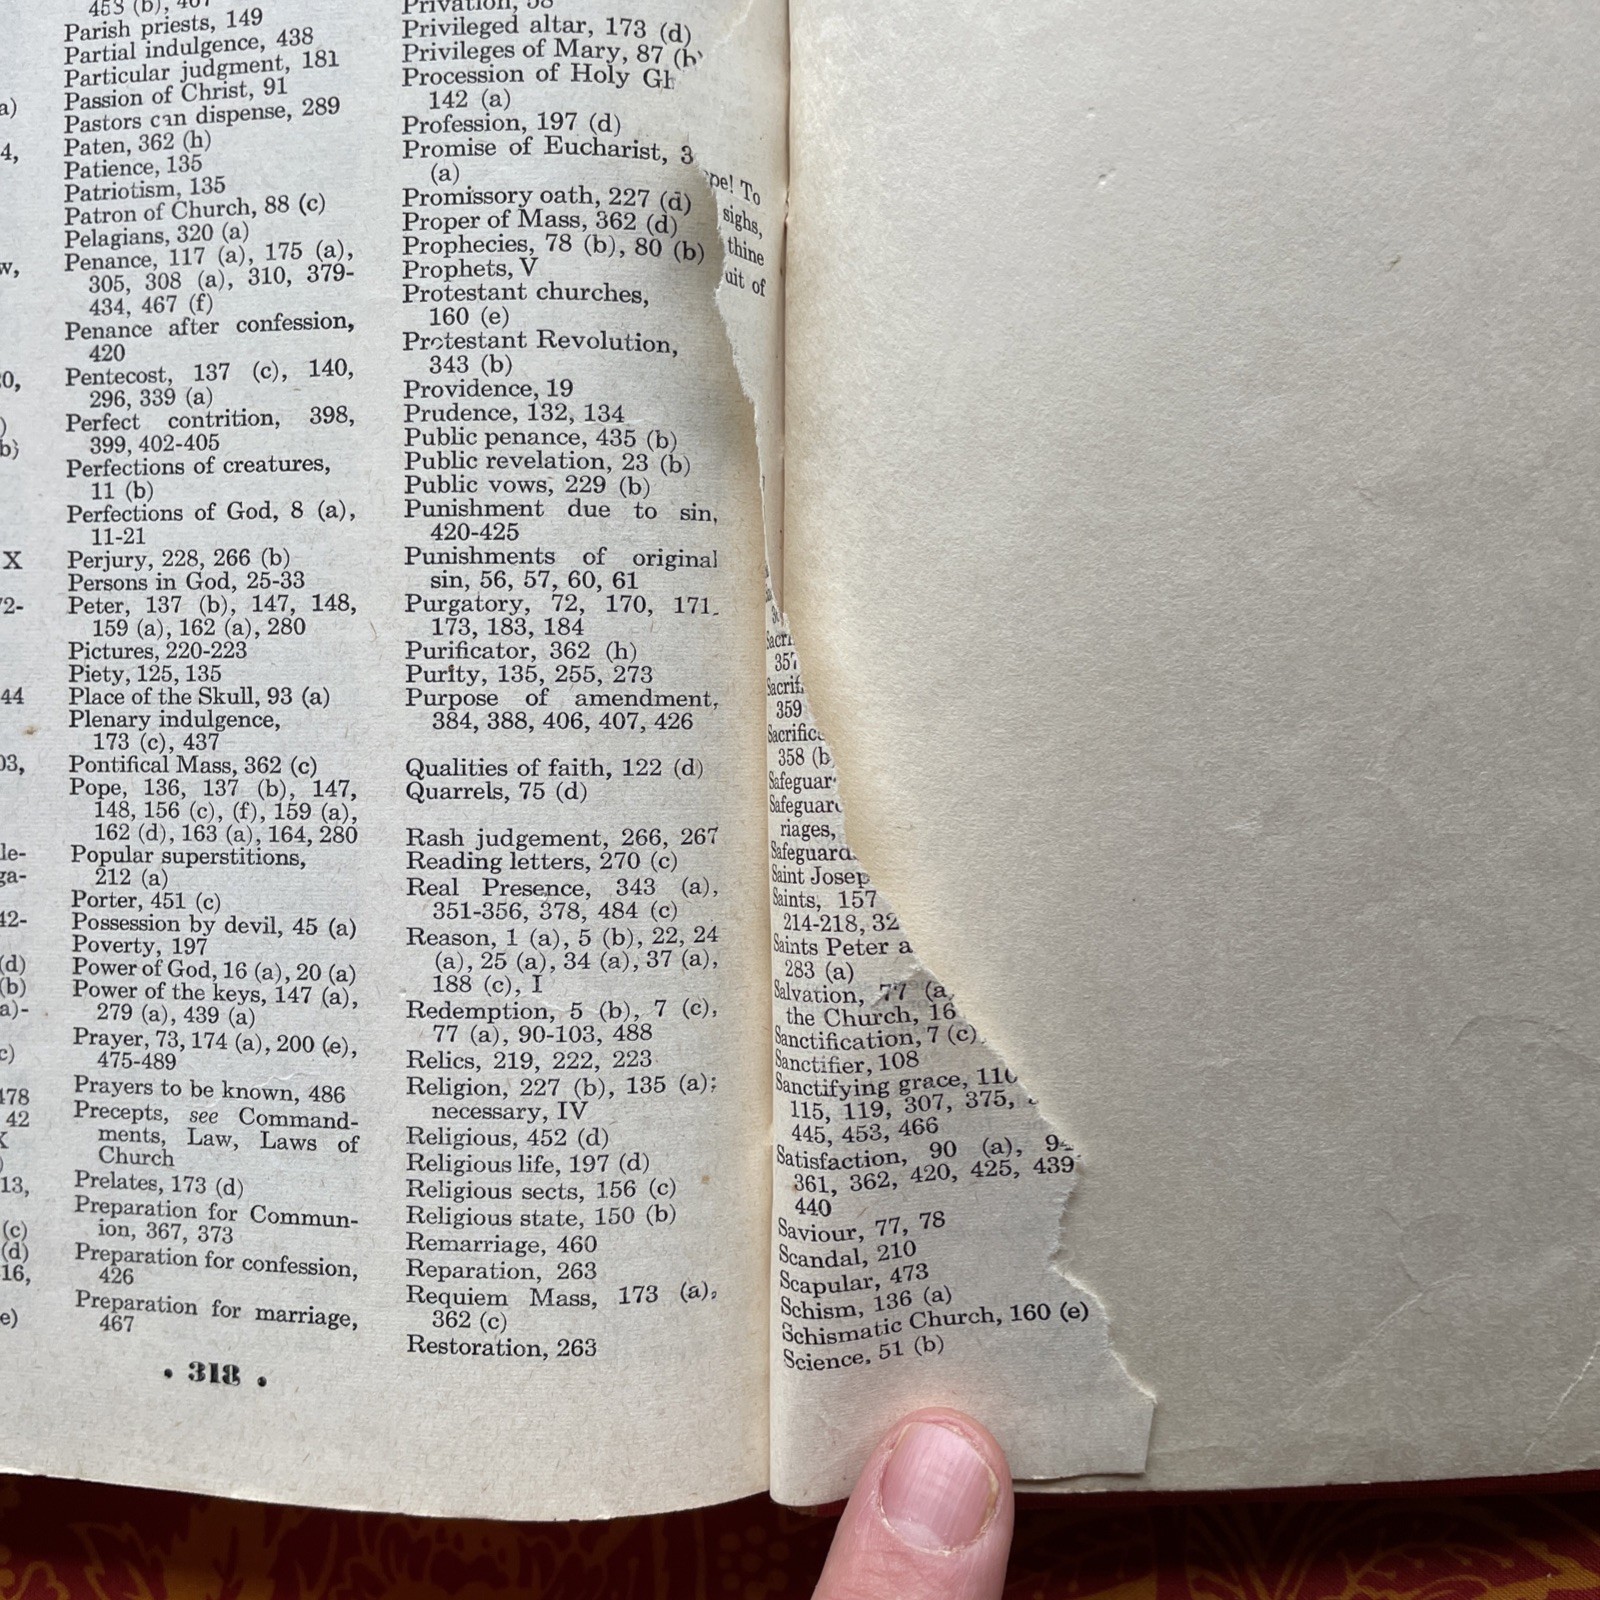 a)
4,
w,
0,
)
b)
X
72-
44
03,
le-
ga-
42-
(d)
(b)
a)-
c)
178
42
)
13,
(c)
(d)
16,
e)
453 (b), 467
Parish priests, 149
Partial indulgence, 438
Particular judgment, 181
Passion of Christ, 91
Pastors can dispense, 289
Paten, 362 (h)
Patience, 135
Patriotism, 135
Patron of Church, 88 (c)
Pelagians, 320 (a)
Penance, 117 (a), 175 (a),
305, 308 (a), 310, 379-
434, 467 (f)
Penance after confession,
420
Pentecost, 137 (c), 140,
296, 339 (a)
Perfect contrition, 398,
399, 402-405
Perfections of creatures,
11 (b)
Perfections of God, 8 (a),
11-21
Perjury, 228, 266 (b)
Persons in God, 25-33
Peter, 137 (b), 147, 148,
159 (a), 162 (a), 280
Pictures, 220-223
Piety, 125, 135
Place of the Skull, 93 (a)
Plenary indulgence,
173 (c), 437
Pontifical Mass, 362 (c)
Pope, 136, 137 (b), 147,
148, 156 (c), (f), 159 (a),
162 (d), 163 (a), 164, 280
Popular superstitions,
212 (a)
Porter, 451 (c)
Possession by devil, 45 (a)
Poverty, 197
Power of God, 16 (a), 20 (a)
Power of the keys, 147 (a),
279 (a), 439 (a)
Prayer, 73, 174 (a), 200 (e),
475-489
Prayers to be known, 486
Precepts, see Command-
ments, Law, Laws of
Church
Prelates, 173 (d)
Preparation for Commun-
ion, 367, 373
Preparation for confession,
426
Preparation for marriage,
467
• 318 •
Privation, 58
Privileged altar, 173 (d)
Privileges of Mary, 87 (b)
Procession of Holy Gh
142 (a)
Profession, 197 (d)
Promise of Eucharist, 3
(a)
Promissory oath, 227 (d)
Proper of Mass, 362 (d)
Prophecies, 78 (b), 80 (b)
Prophets, V
Protestant churches,
160 (e)
Protestant Revolution,
343 (b)
Providence, 19
Prudence, 132, 134
Public penance, 435 (b)
Public revelation, 23 (b)
Public vows, 229 (b)
Punishment due to sin,
420-425
Punishments of original
sin, 56, 57, 60, 61
Purgatory, 72, 170, 171,
173, 183, 184
Purificator, 362 (h)
Purity, 135, 255, 273
Purpose of amendment,
384, 388, 406, 407, 426
Qualities of faith, 122 (d)
Quarrels, 75 (d)
Rash judgement, 266, 267
Reading letters, 270 (c)
Real Presence, 343 (a),
351-356, 378, 484 (c)
Reason, 1 (a), 5 (b), 22, 24
(a), 25 (a), 34 (a), 37 (a),
188 (c), I
Redemption, 5 (b), 7 (c),
77 (a), 90-103, 488
Relics, 219, 222, 223
Religion, 227 (b), 135 (a);
necessary, IV
Religious, 452 (d)
Religious life, 197 (d)
Religious sects, 156 (c)
Religious state, 150 (b)
Remarriage, 460
Reparation, 263
Requiem Mass, 173 (a),
362 (c)
Restoration, 263
ope! To
sighs,
thine
uit of
Sacri
357
Sacrif
359
Sacrific
358 (b
Safeguar
Safeguar
riages,
Safeguard
Saint Josep
Saints, 157
214-218, 32
Saints Peter a
283 (a)
Salvation, 77 (a
the Church, 16
Sanctification, 7 (c)
Sanctifier, 108
Sanctifying grace, 110
115, 119, 307, 375,
445, 453, 466
Satisfaction, 90 (a), 94
361, 362, 420, 425, 439
440
Saviour, 77, 78
Scandal, 210
Scapular, 473
Schism, 136 (a)
Schismatic Church, 160 (e)
Science, 51 (b)